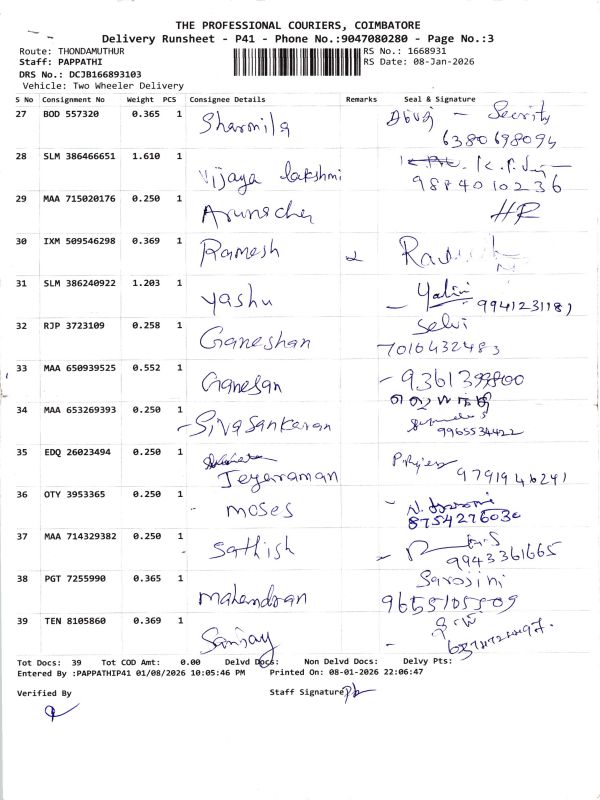 THE PROFESSIONAL COURIERS, COIMBATORE
Delivery Runsheet - P41 - Phone No.:9047080280 - Page No.:3
Route: THONDAMUTHUR RS No.: 1668931
Staff: PAPPATHI RS Date: 08-Jan-2026
DRS No.: DCJB166893103
Vehicle: Two Wheeler Delivery
S No Consignment No Weight PCS Consignee Details Remarks Seal & Signature
27 BOD 557320 0.365 1 Sharmila Security
6380698094
28 SLM 386466651 1.610 1 Vijaya lakshmi
9884010236
29 MAA 715020176 0.250 1 HR
30 IXM 509546298 0.369 1 Ramesh
31 SLM 386240922 1.203 1 Yashu Yalini
32 RJP 3723109 0.258 1 Ganeshan Selvi
7016432483
33 MAA 650939525 0.552 1 Ganesan
34 MAA 653269393 0.250 1 Sivasankaran
9965534422
35 EDQ 26023494 0.250 1 Jeyaraman 9791946241
36 OTY 3953365 0.250 1 moses
37 MAA 714329382 0.250 1 Sathish
9943361665
38 PGT 7255990 0.365 1 Mahendran Sarojini
39 TEN 8105860 0.369 1 Sanjay
Tot Docs: 39 Tot COD Amt: 0.00 Delvd Docs: Non Delvd Docs: Delvy Pts:
Entered By :PAPPATHIP41 01/08/2026 10:05:46 PM Printed On: 08-01-2026 22:06:47
Verified By Staff Signature